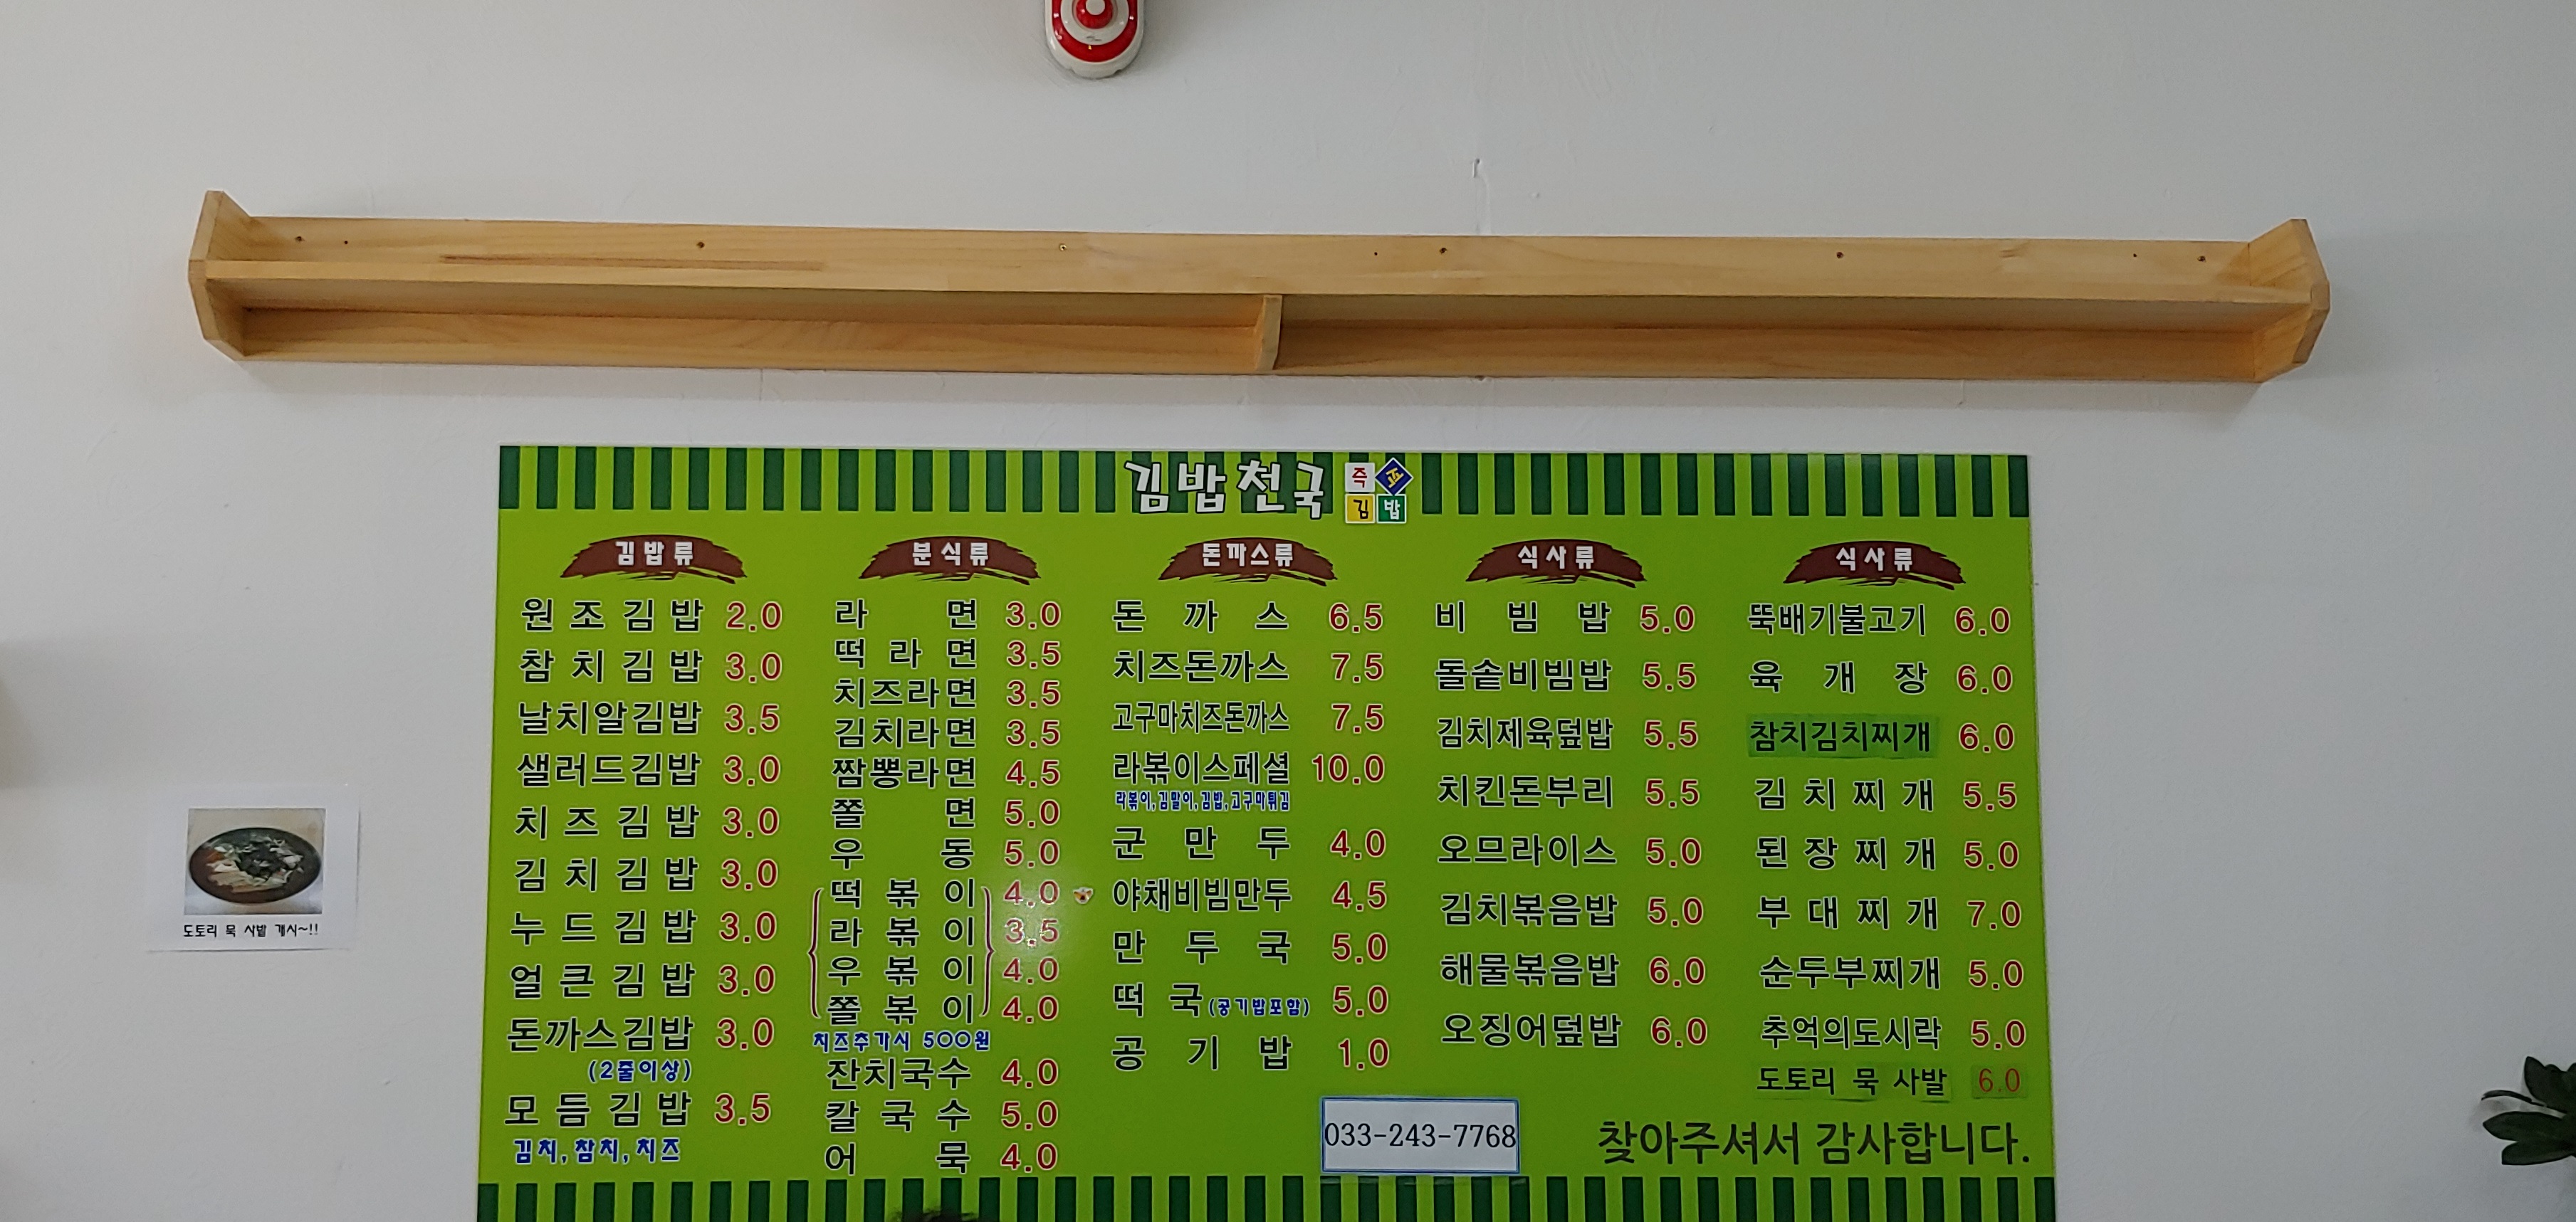 김밥천국 즉석김밥
김밥류
원조김밥 2.0
참치김밥 3.0
날치알김밥 3.5
샐러드김밥 3.0
치즈김밥 3.0
김치김밥 3.0
누드김밥 3.0
얼큰김밥 3.0
돈까스김밥 3.0
(2줄이상)
모듬김밥 3.5
김치,참치,치즈
분식류
라면 3.0
떡라면 3.5
치즈라면 3.5
김치라면 3.5
짬뽕라면 4.5
쫄면 5.0
우동 5.0
떡볶이 4.0
라볶이 3.5
우볶이 4.0
쫄볶이 4.0
치즈추가시 500원
잔치국수 4.0
칼국수 5.0
어묵 4.0
돈까스류
돈까스 6.5
치즈돈까스 7.5
고구마치즈돈까스 7.5
라볶이스페셜 10.0
라볶이,김말이,김밥,고구마튀김
군만두 4.0
야채비빔만두 4.5
만두국 5.0
떡국(공기밥포함) 5.0
공기밥 1.0
식사류
비빔밥 5.0
돌솥비빔밥 5.5
김치제육덮밥 5.5
치킨돈부리 5.5
오므라이스 5.0
김치볶음밥 5.0
해물볶음밥 6.0
오징어덮밥 6.0
식사류
뚝배기불고기 6.0
육개장 6.0
참치김치찌개 6.0
김치찌개 5.5
된장찌개 5.0
부대찌개 7.0
순두부찌개 5.0
추억의도시락 5.0
도토리 묵 사발 6.0
033-243-7768
찾아주셔서 감사합니다.
도토리 묵 사발 개시~!!